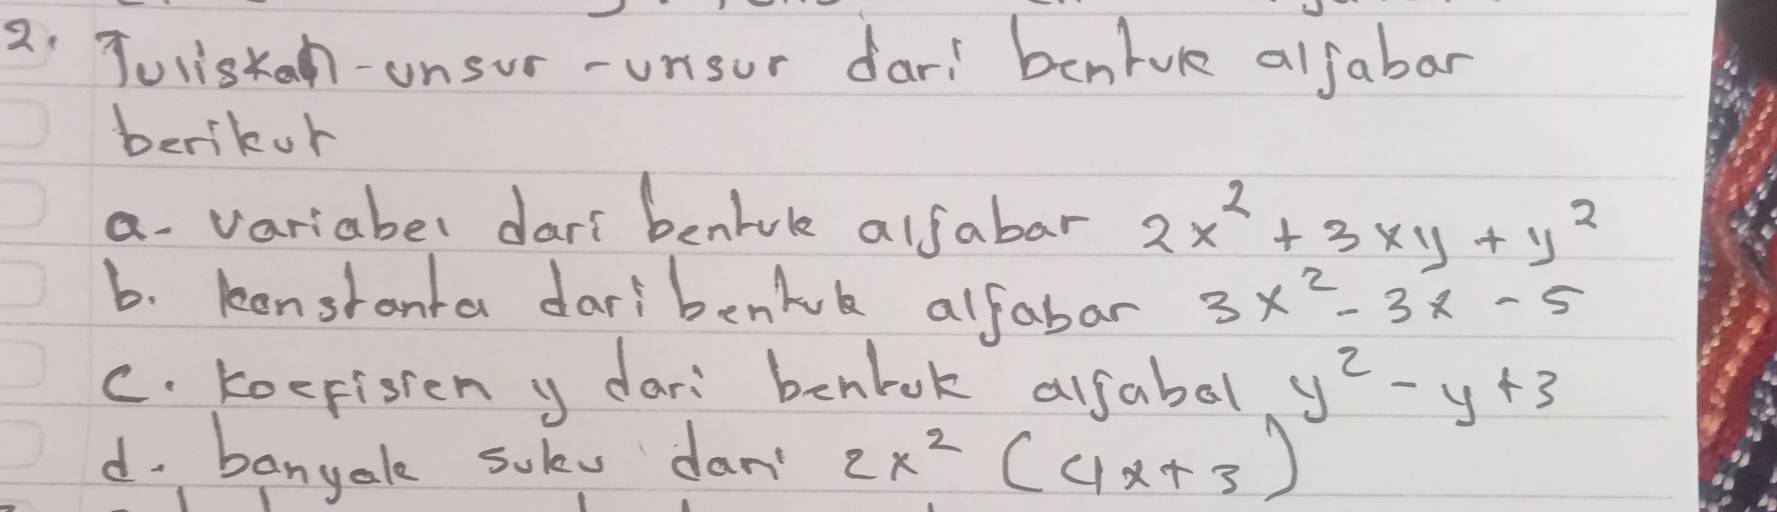 2. Tuliskan-unsur-unsur dari bentuk aljabar
berikut
a. variabel dari bentuk aljabar 2x² + 3xy + y²
b. konstanta dari bentuk aljabar 3x² - 3x - 5
c. koefisien y dari bentuk aljabal y² - y + 3
d. banyak suku dari 2x² (4x+3)